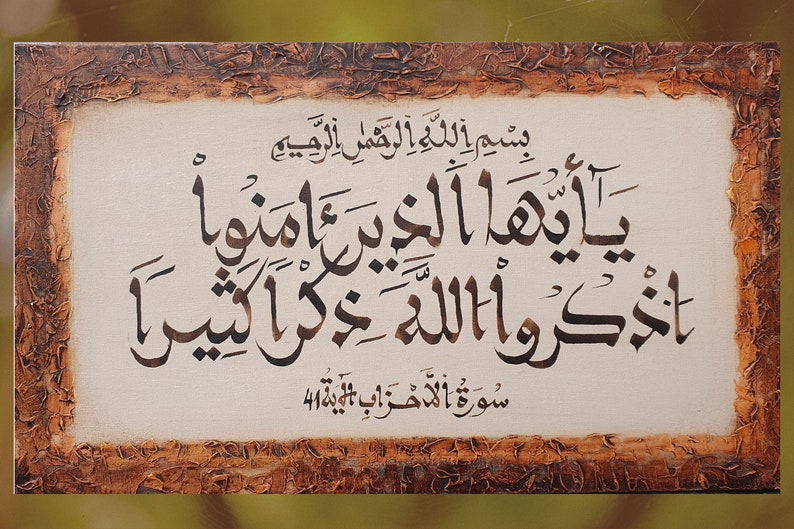 بِسْمِ اِ۬للَّهِ اِ۬لرَّحْمَٰنِ اِ۬لرَّحِيمِ
يَٰٓأَيُّهَا اَ۬لذِينَ ءَامَنُواْ
اُ۟ذْكُرُواْ اُ۬للَّهَ ذِكْراٗ كَثِيراٗ
سُورَةُ اُ۬لَاحْزَابِ الآيَةُ 41